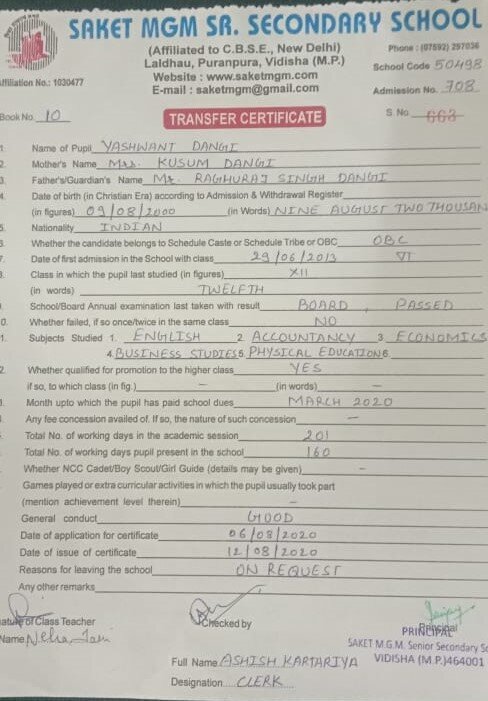 SAKET MGM SR. SECONDARY SCHOOL
(Affiliated to C.B.S.E., New Delhi)
Phone : (07592) 297036
Laldhau, Puranpura, Vidisha (M.P.)
School Code 50498
Website : www.saketmgm.com
Affiliation No.: 1030477
E-mail : saketmgm@gmail.com
Admission No. 708
Book No. 10
S. No. 663
TRANSFER CERTIFICATE
1. Name of Pupil YASHWANT DANGI
2. Mother's Name Mrs. KUSUM DANGI
3. Father's/Guardian's Name Mr. RAGHURAJ SINGH DANGI
4. Date of birth (in Christian Era) according to Admission & Withdrawal Register
(in figures) 09/08/2000 (in Words) NINE AUGUST TWO THOUSAN
5. Nationality INDIAN
Whether the candidate belongs to Schedule Caste or Schedule Tribe or OBC OBC
7. Date of first admission in the School with class 29/06/2013 VI
8. Class in which the pupil last studied (in figures) XII
(in words) TWELFTH
School/Board Annual examination last taken with result BOARD, PASSED
0. Whether failed, if so once/twice in the same class NO
1. Subjects Studied 1. ENGLISH 2. ACCOUNTANCY 3. ECONOMICS
4. BUSINESS STUDIES 5. PHYSICAL EDUCATION 6.
2. Whether qualified for promotion to the higher class YES
if so, to which class (in fig.) – (in words) –
Month upto which the pupil has paid school dues MARCH 2020
Any fee concession availed of. If so, the nature of such concession –
Total No. of working days in the academic session 201
Total No. of working days pupil present in the school 160
Whether NCC Cadet/Boy Scout/Girl Guide (details may be given) –
Games played or extra curricular activities in which the pupil usually took part
(mention achievement level therein) –
General conduct GOOD
Date of application for certificate 06/08/2020
Date of issue of certificate 12/08/2020
Reasons for leaving the school ON REQUEST
Any other remarks
ature of Class Teacher
Checked by
Principal
PRINCIPAL
Name Neha Jain
SAKET M.G.M. Senior Secondary Sc
Full Name ASHISH KARTARIYA
VIDISHA (M.P.) 464001
Designation CLERK